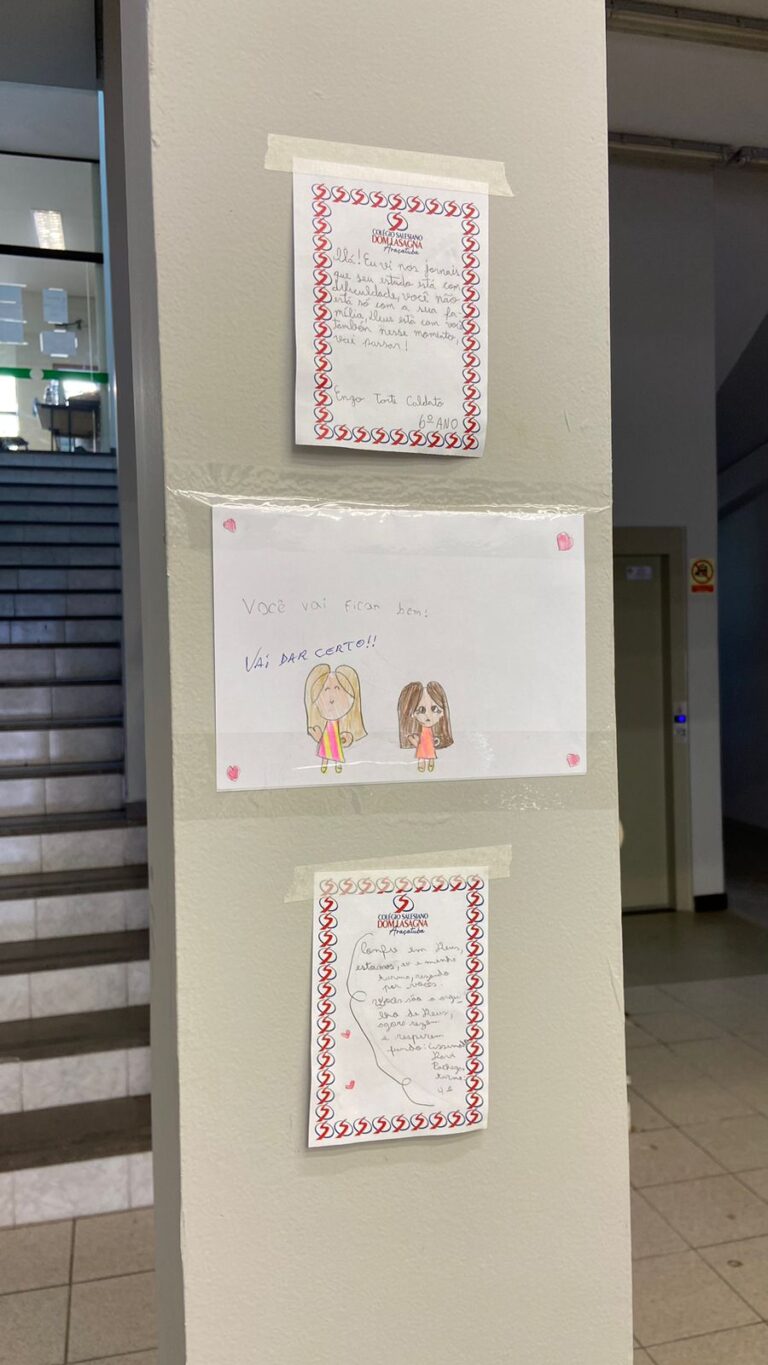 COLÉGIO SALESIANO
DOM LASAGNA
Araçatuba
Olá! Eu vi nos jornais
que seu estado está com
dificuldade, você não
está só com a sua fa-
mília, Deus está com você
também nesse momento,
vai passar!
Enzo Torte Caldato
6º ANO
Você vai ficar bem!
VAI DAR CERTO!!
COLÉGIO SALESIANO
DOM LASAGNA
Araçatuba
Confie em Deus,
estamos, eu e minha
turma, rezando
por vocês.
Vocês são o orgu-
lho de Deus,
agora rezem
e respirem
fundo! Assinado
turma